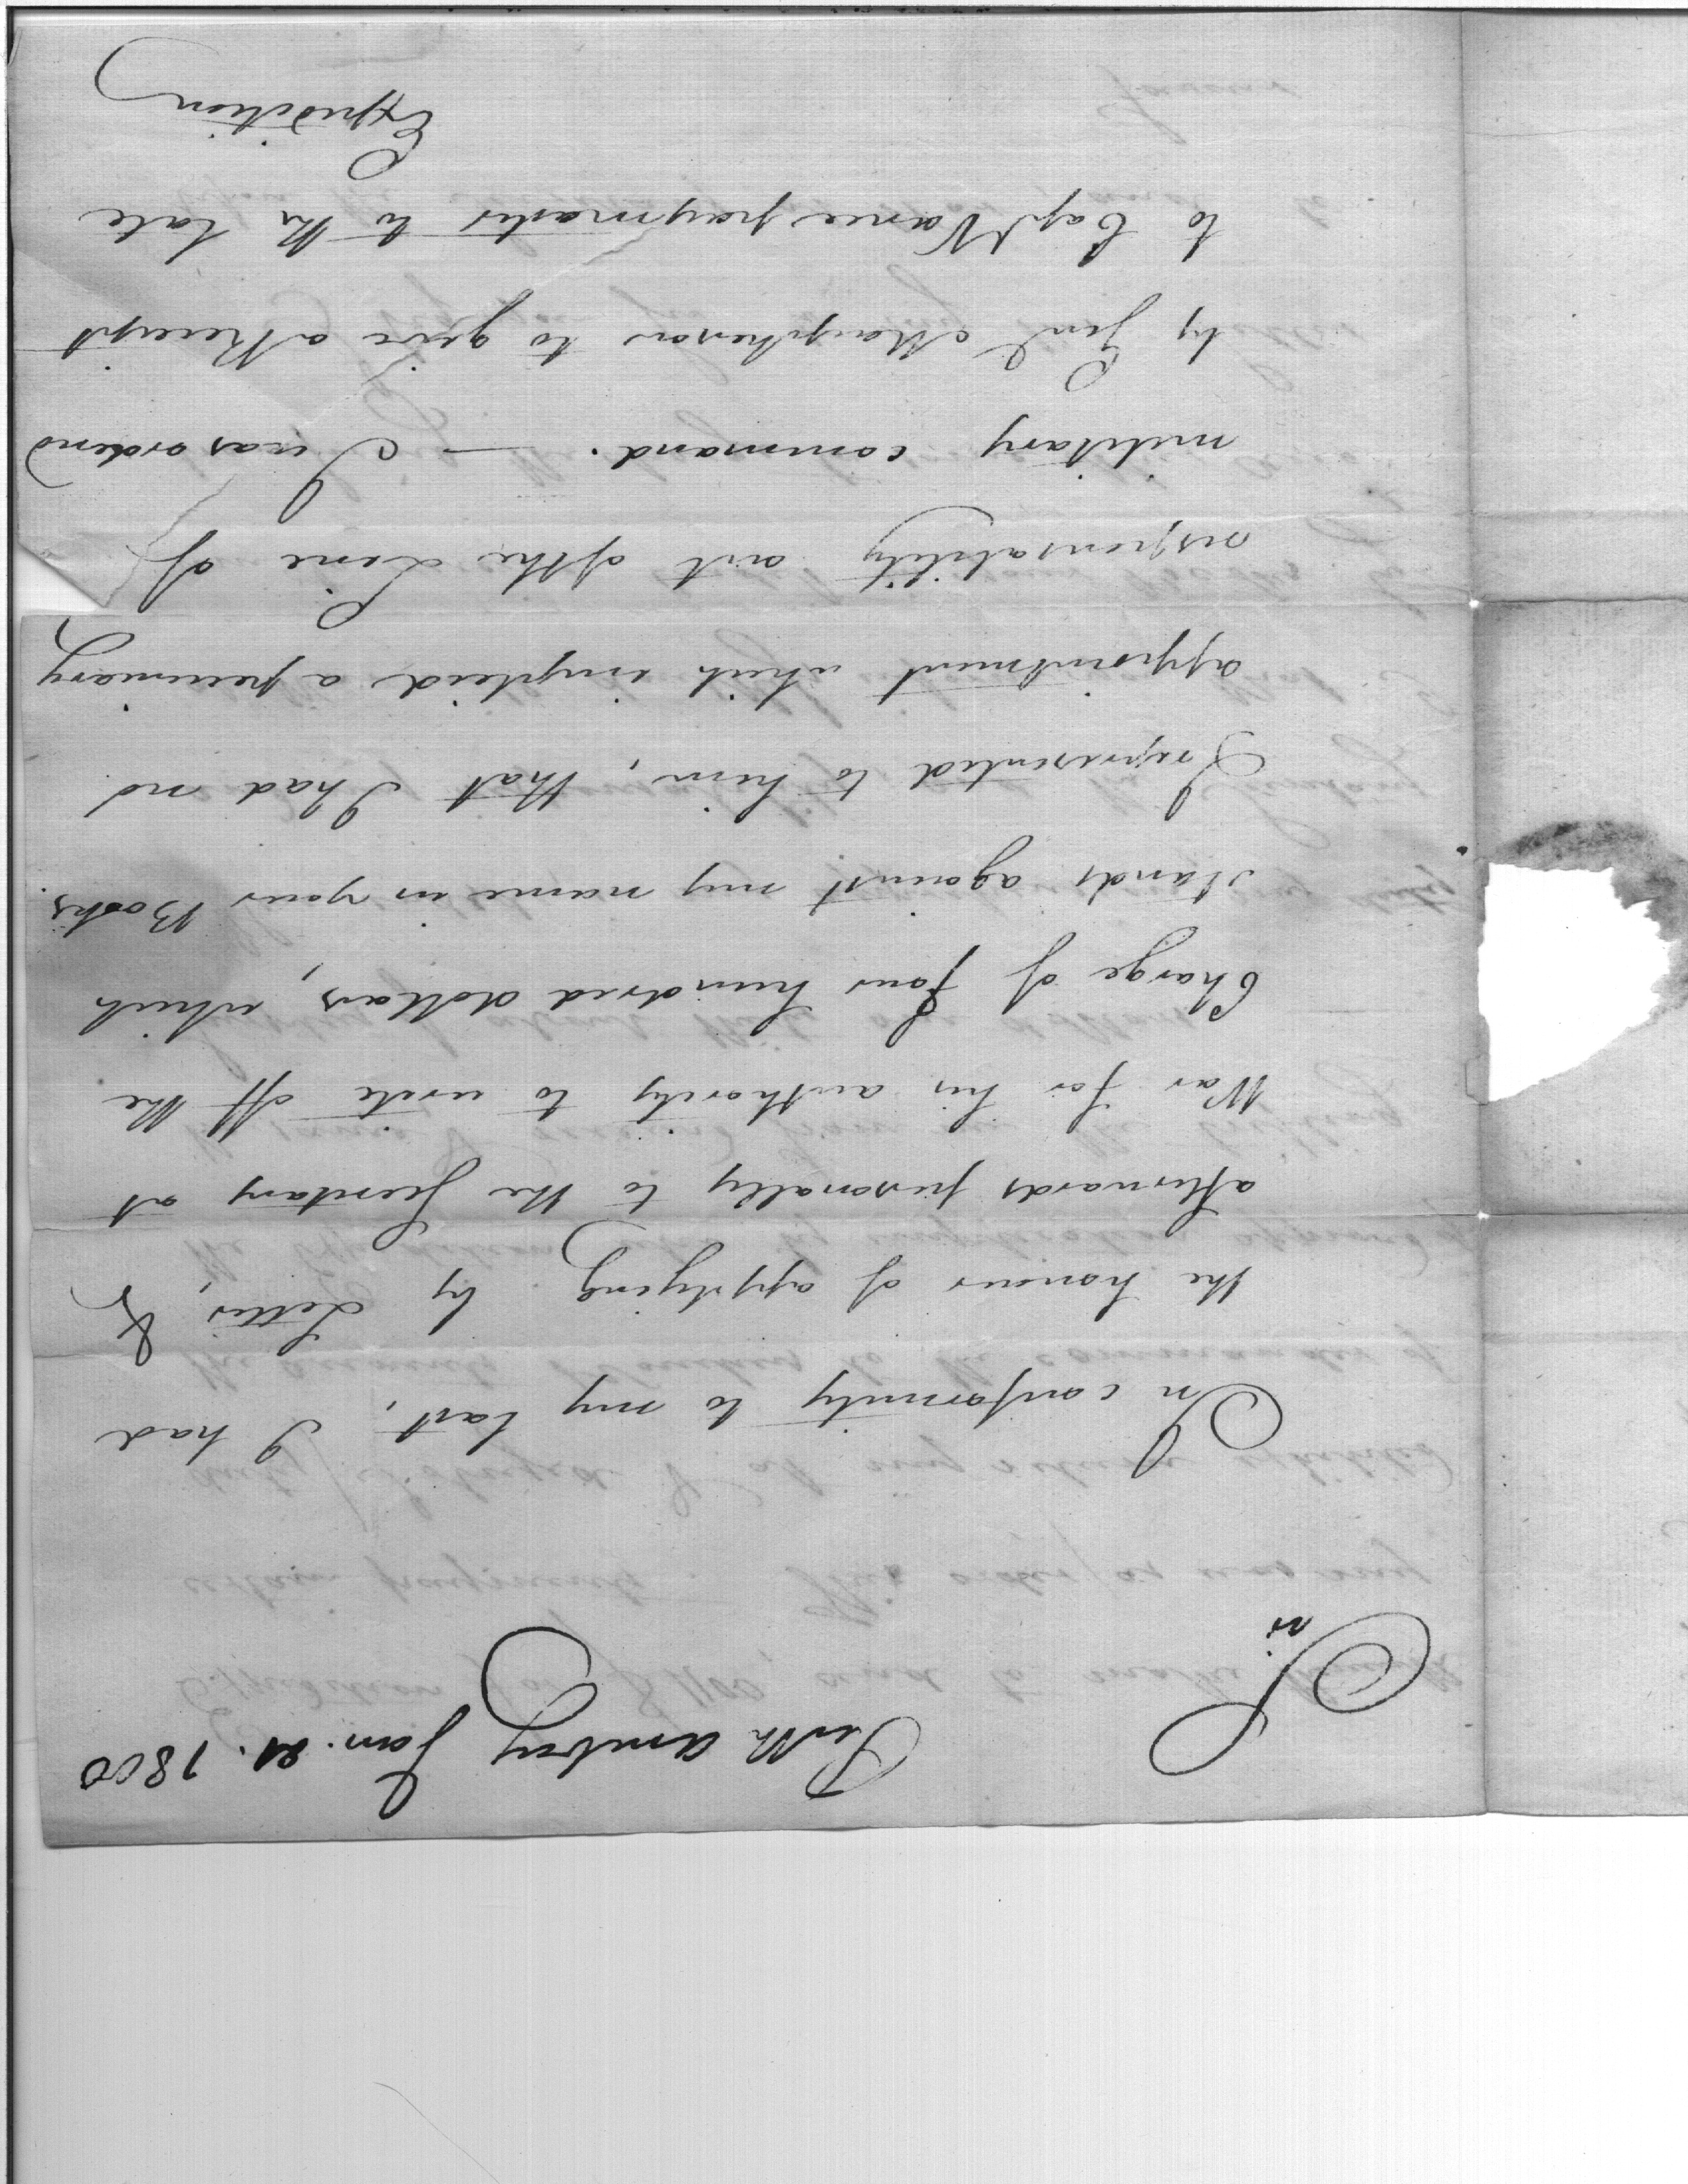 Perth Amboy Jan. 21. 1800
Sir
In conformity to my last, I had
the honour of applying by Letter, &
afterwards personally to the Secretary at
War for his authority to write off the
Charge of four hundred dollars, which
stands against my name in your Books.
I represented to him, that I had no
appointment which implied a pecuniary
responsability out of the Line of
military command. — I was ordered
by Genl Macpherson to give a Receipt
to Capt Vance paymaster to the late
Expedition